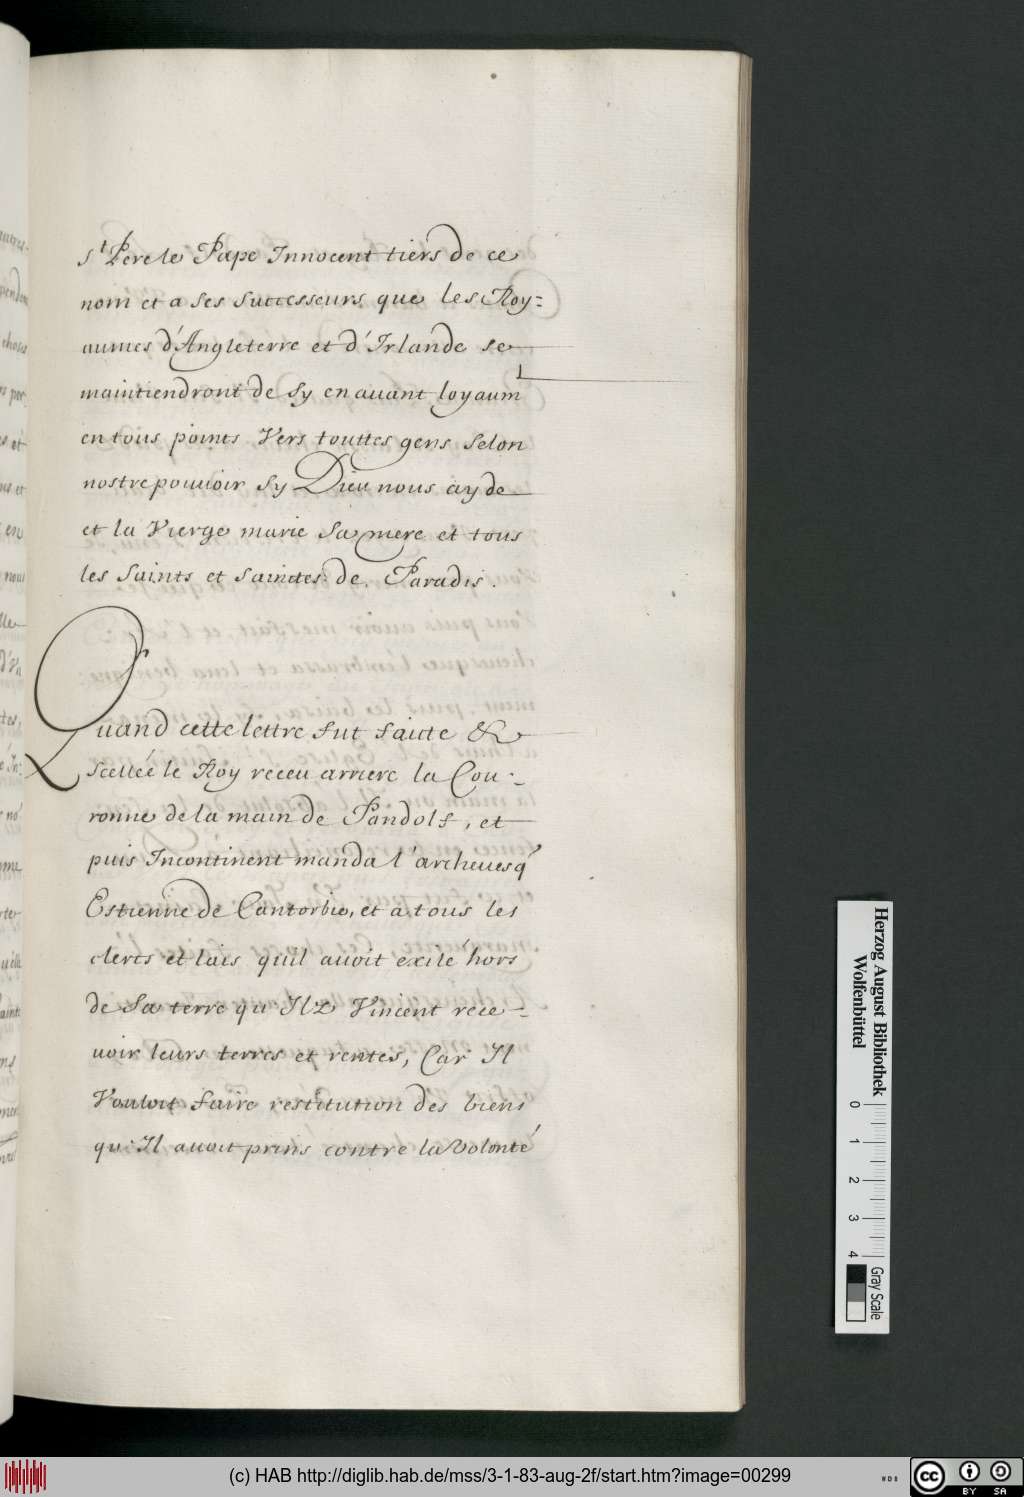 s.t Pere le Pape Innocent tiers de ce
nom et a ses successeurs que les Roy=
aumes d'Angleterre et d'Irlande se
maintiendront de sy en auant loyaum.t
en tous points Vers touttes gens selon
nostre pouuoir sy Dieu nous ayde
et la Vierge marie sa mere et tous
les saints et sainctes de Paradis.
Quand cette lettre fut faicte &
scelleé le Roy receu arriere la Cou-
ronne de la main de Pandolf, et
puis Incontinent manda l'archeuesq'
Estienne de Cantorbie, et a tous les
clercs et lais quil auoit exilé hors
de sa terre qu'Ilz Vincent rece-
uoir leurs terres et rentes, Car Il
Vouloit faire restitution des biens
qu'Il auoit prins contre la Volonté
Herzog August Bibliothek
Wolfenbüttel
0 1 2 3 4
Gray Scale
(c) HAB http://diglib.hab.de/mss/3-1-83-aug-2f/start.htm?image=00299
WDB
cc BY SA